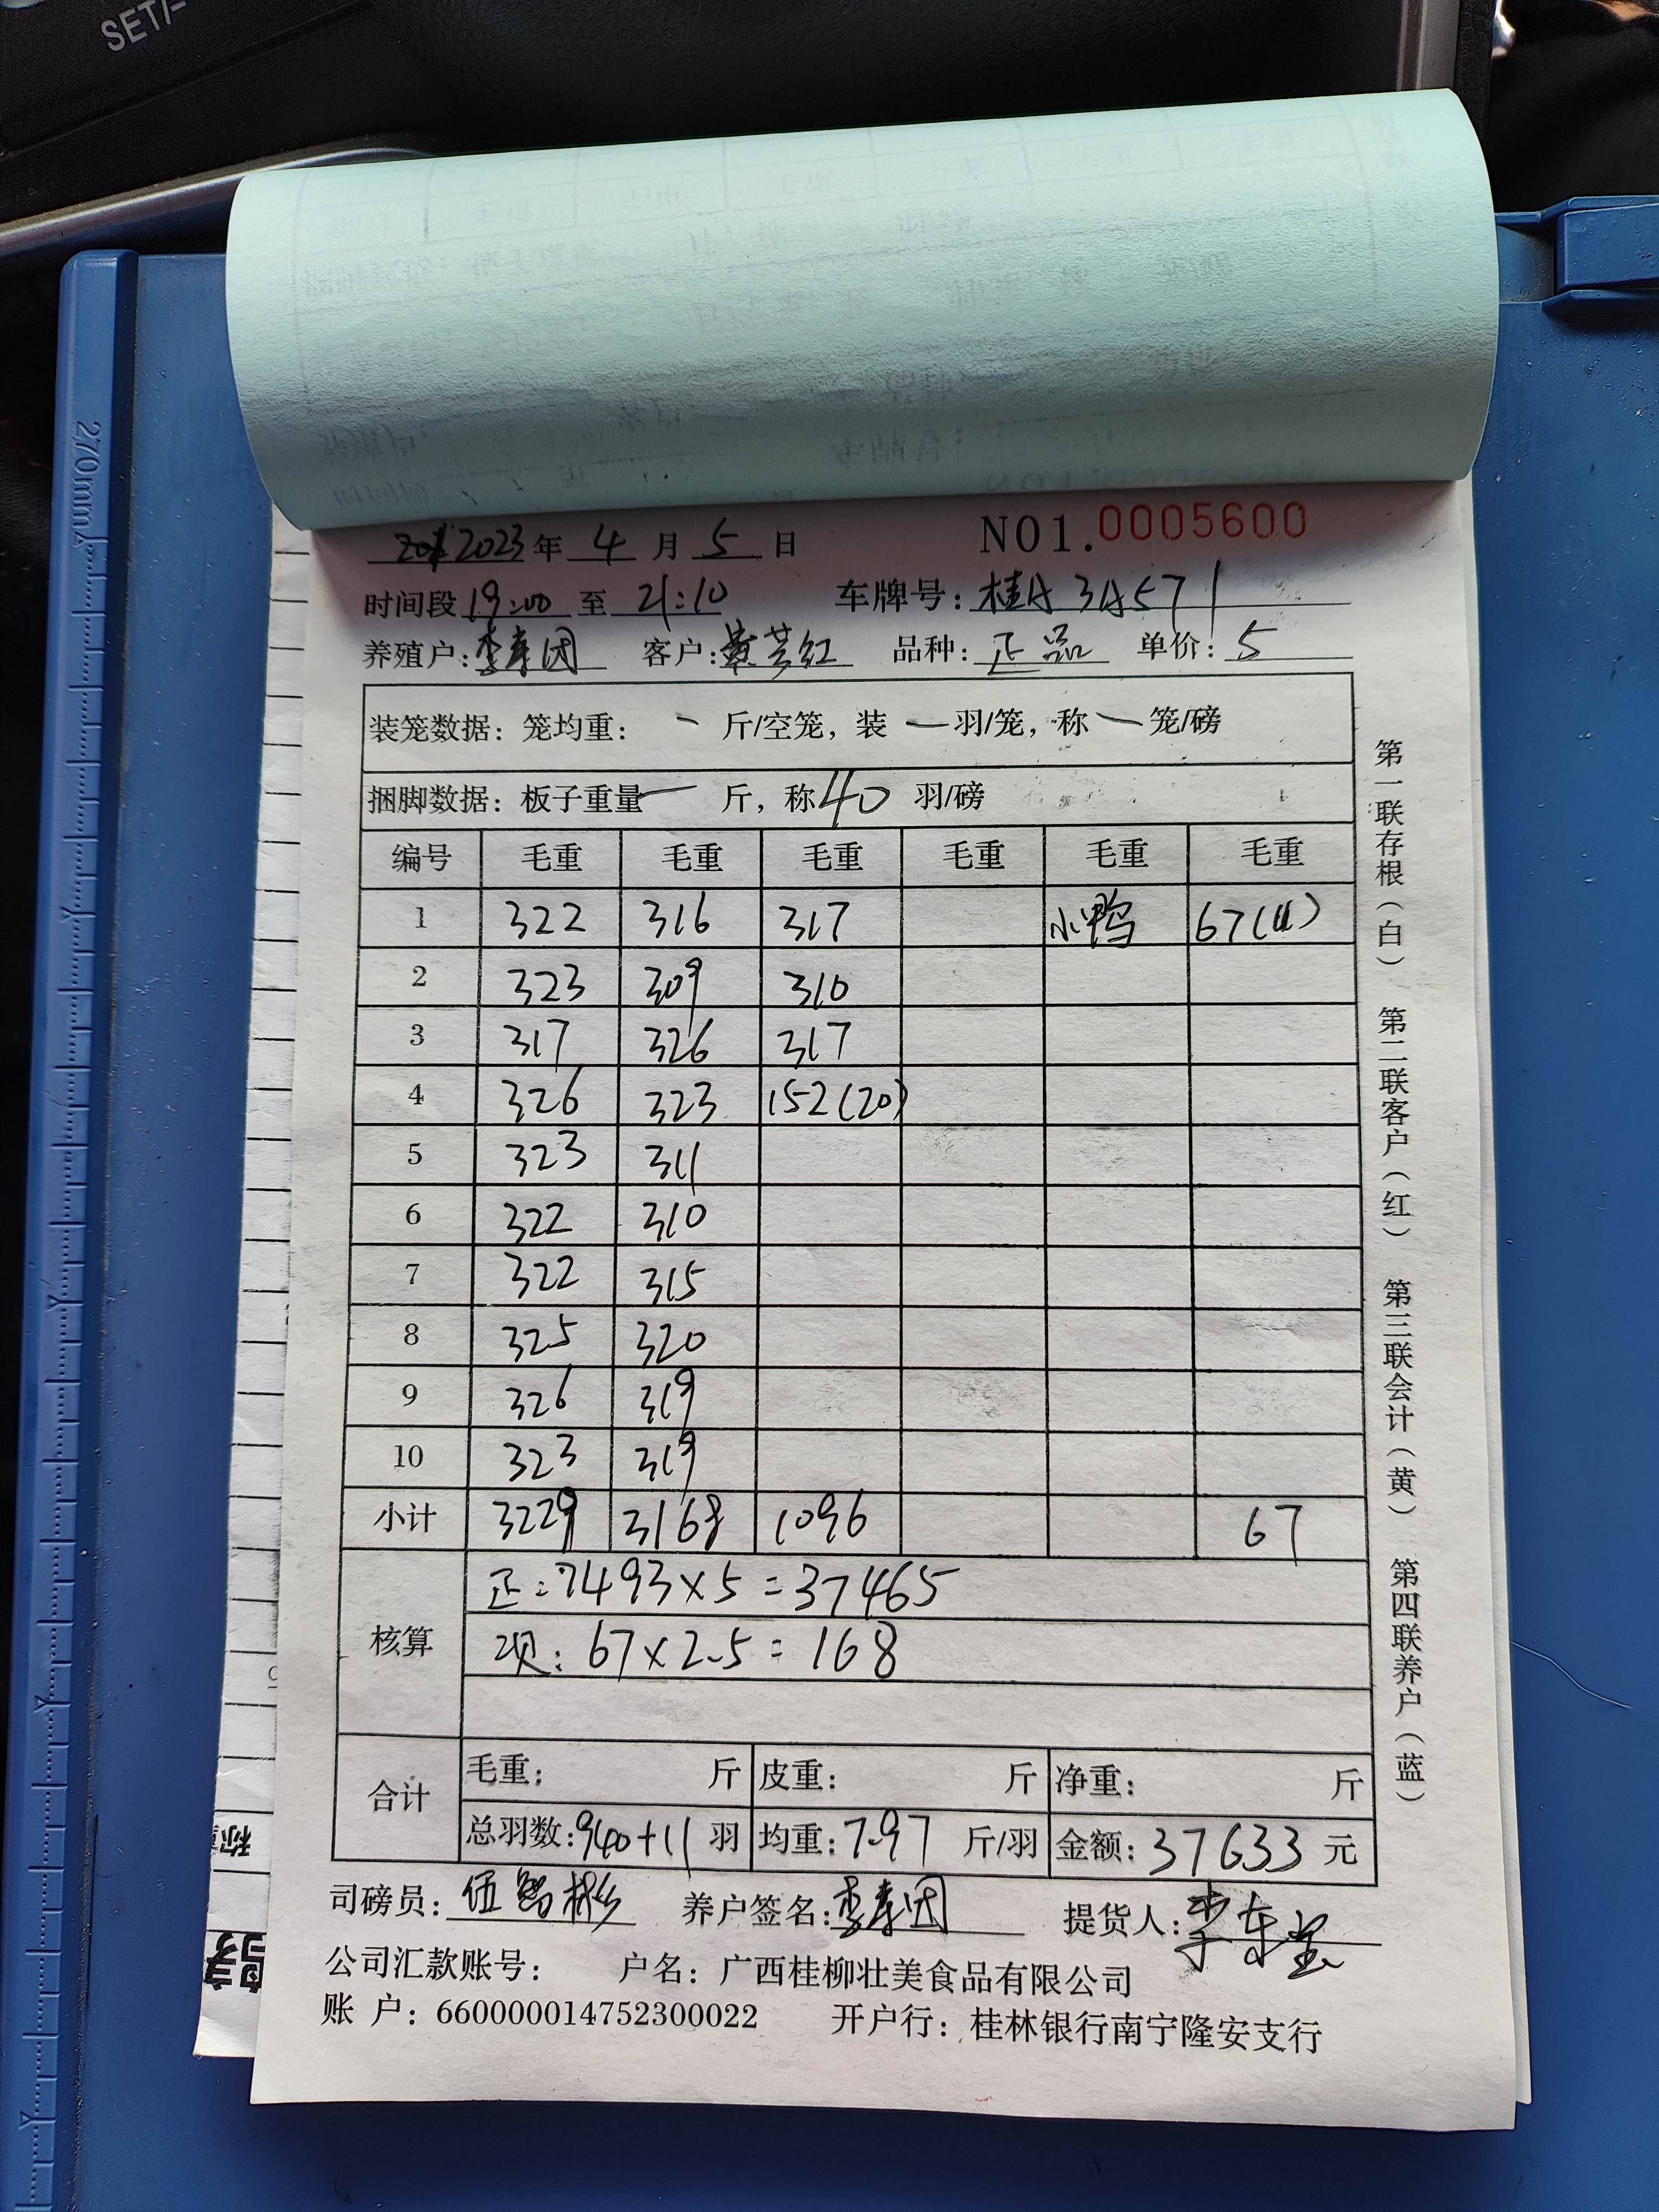 SET/-
270mm
2023年 4 月 5 日 NO1.0005600
时间段 19:00 至 21:10 车牌号: 桂A 3A571
养殖户: 李寿因 客户: 黄芸红 品种: 正品 单价: 5
装笼数据: 笼均重: 一 斤/空笼, 装 一 羽/笼, 称 一 笼/磅
捆脚数据: 板子重量 一 斤, 称 40 羽/磅
编号 毛重 毛重 毛重 毛重 毛重 毛重
1 322 316 317 小鸭 67(11)
2 323 309 310
3 317 326 317
4 326 323 152(20)
5 323 311
6 322 310
7 322 315
8 325 320
9 326 319
10 323 319
小计 3229 3168 1096 67
核算
正: 7493×5=37465
项: 67×2.5=168
合计
毛重: 斤 皮重: 斤 净重: 斤
总羽数: 940+11 羽 均重: 7.97 斤/羽 金额: 37633 元
司磅员: 伍 彬 养户签名: 李寿因 提货人: 李东
公司汇款账号: 户名: 广西桂柳壮美食品有限公司
账 户: 660000014752300022 开户行: 桂林银行南宁隆安支行
第一联存根(白) 第二联客户(红) 第三联会计(黄) 第四联养户(蓝)
称